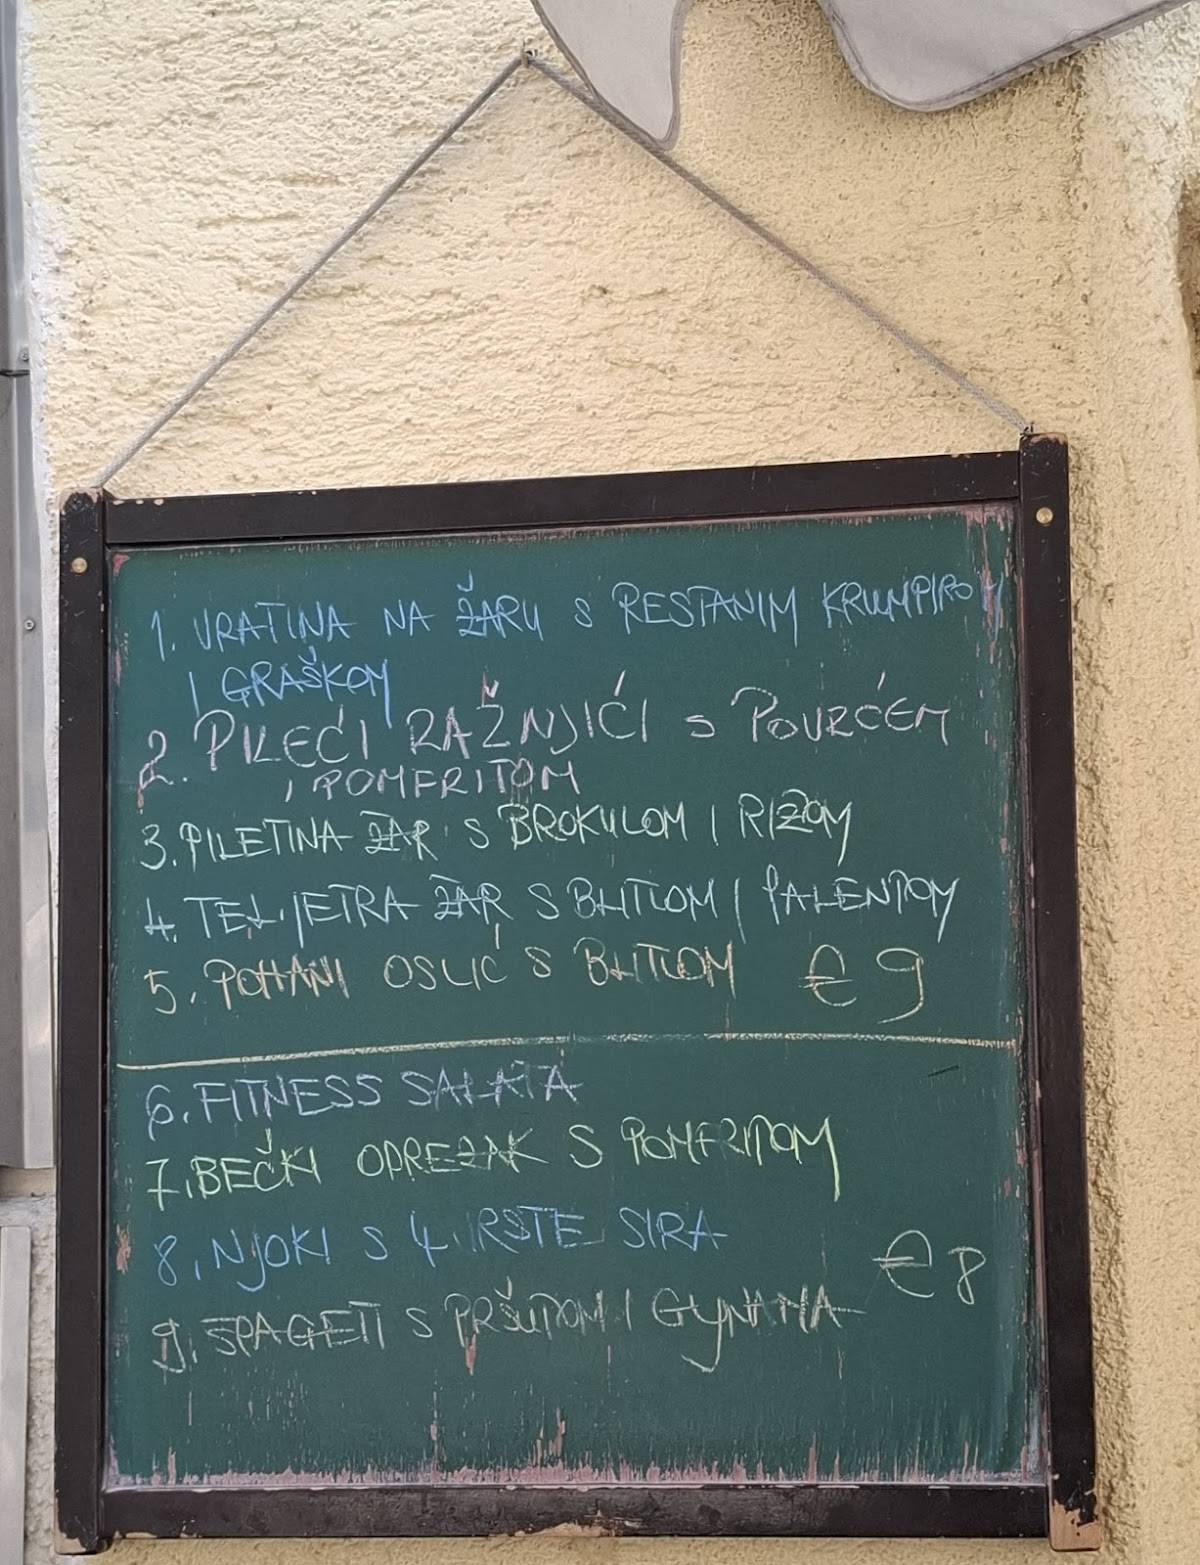 1. VRATINA NA ŽARU S RESTANIM KRUMPIROM
I GRAŠKOM
2. PILEĆI RAŽNJIĆI S POVRĆEM
I POMFRITOM
3. PILETINA ŽAR S BROKULOM I RIŽOM
4. TEL. JETRA ŽAR S BLITLOM I PALENTOM
5. POHANI OSLIĆ S BLITLOM € 9
6. FITNESS SALATA
7. BEČKI ODREZAK S POMFRITOM
8. NJOKI S 4 VRSTE SIRA
€ 8
9. ŠPAGETI S PRŠUTOM I